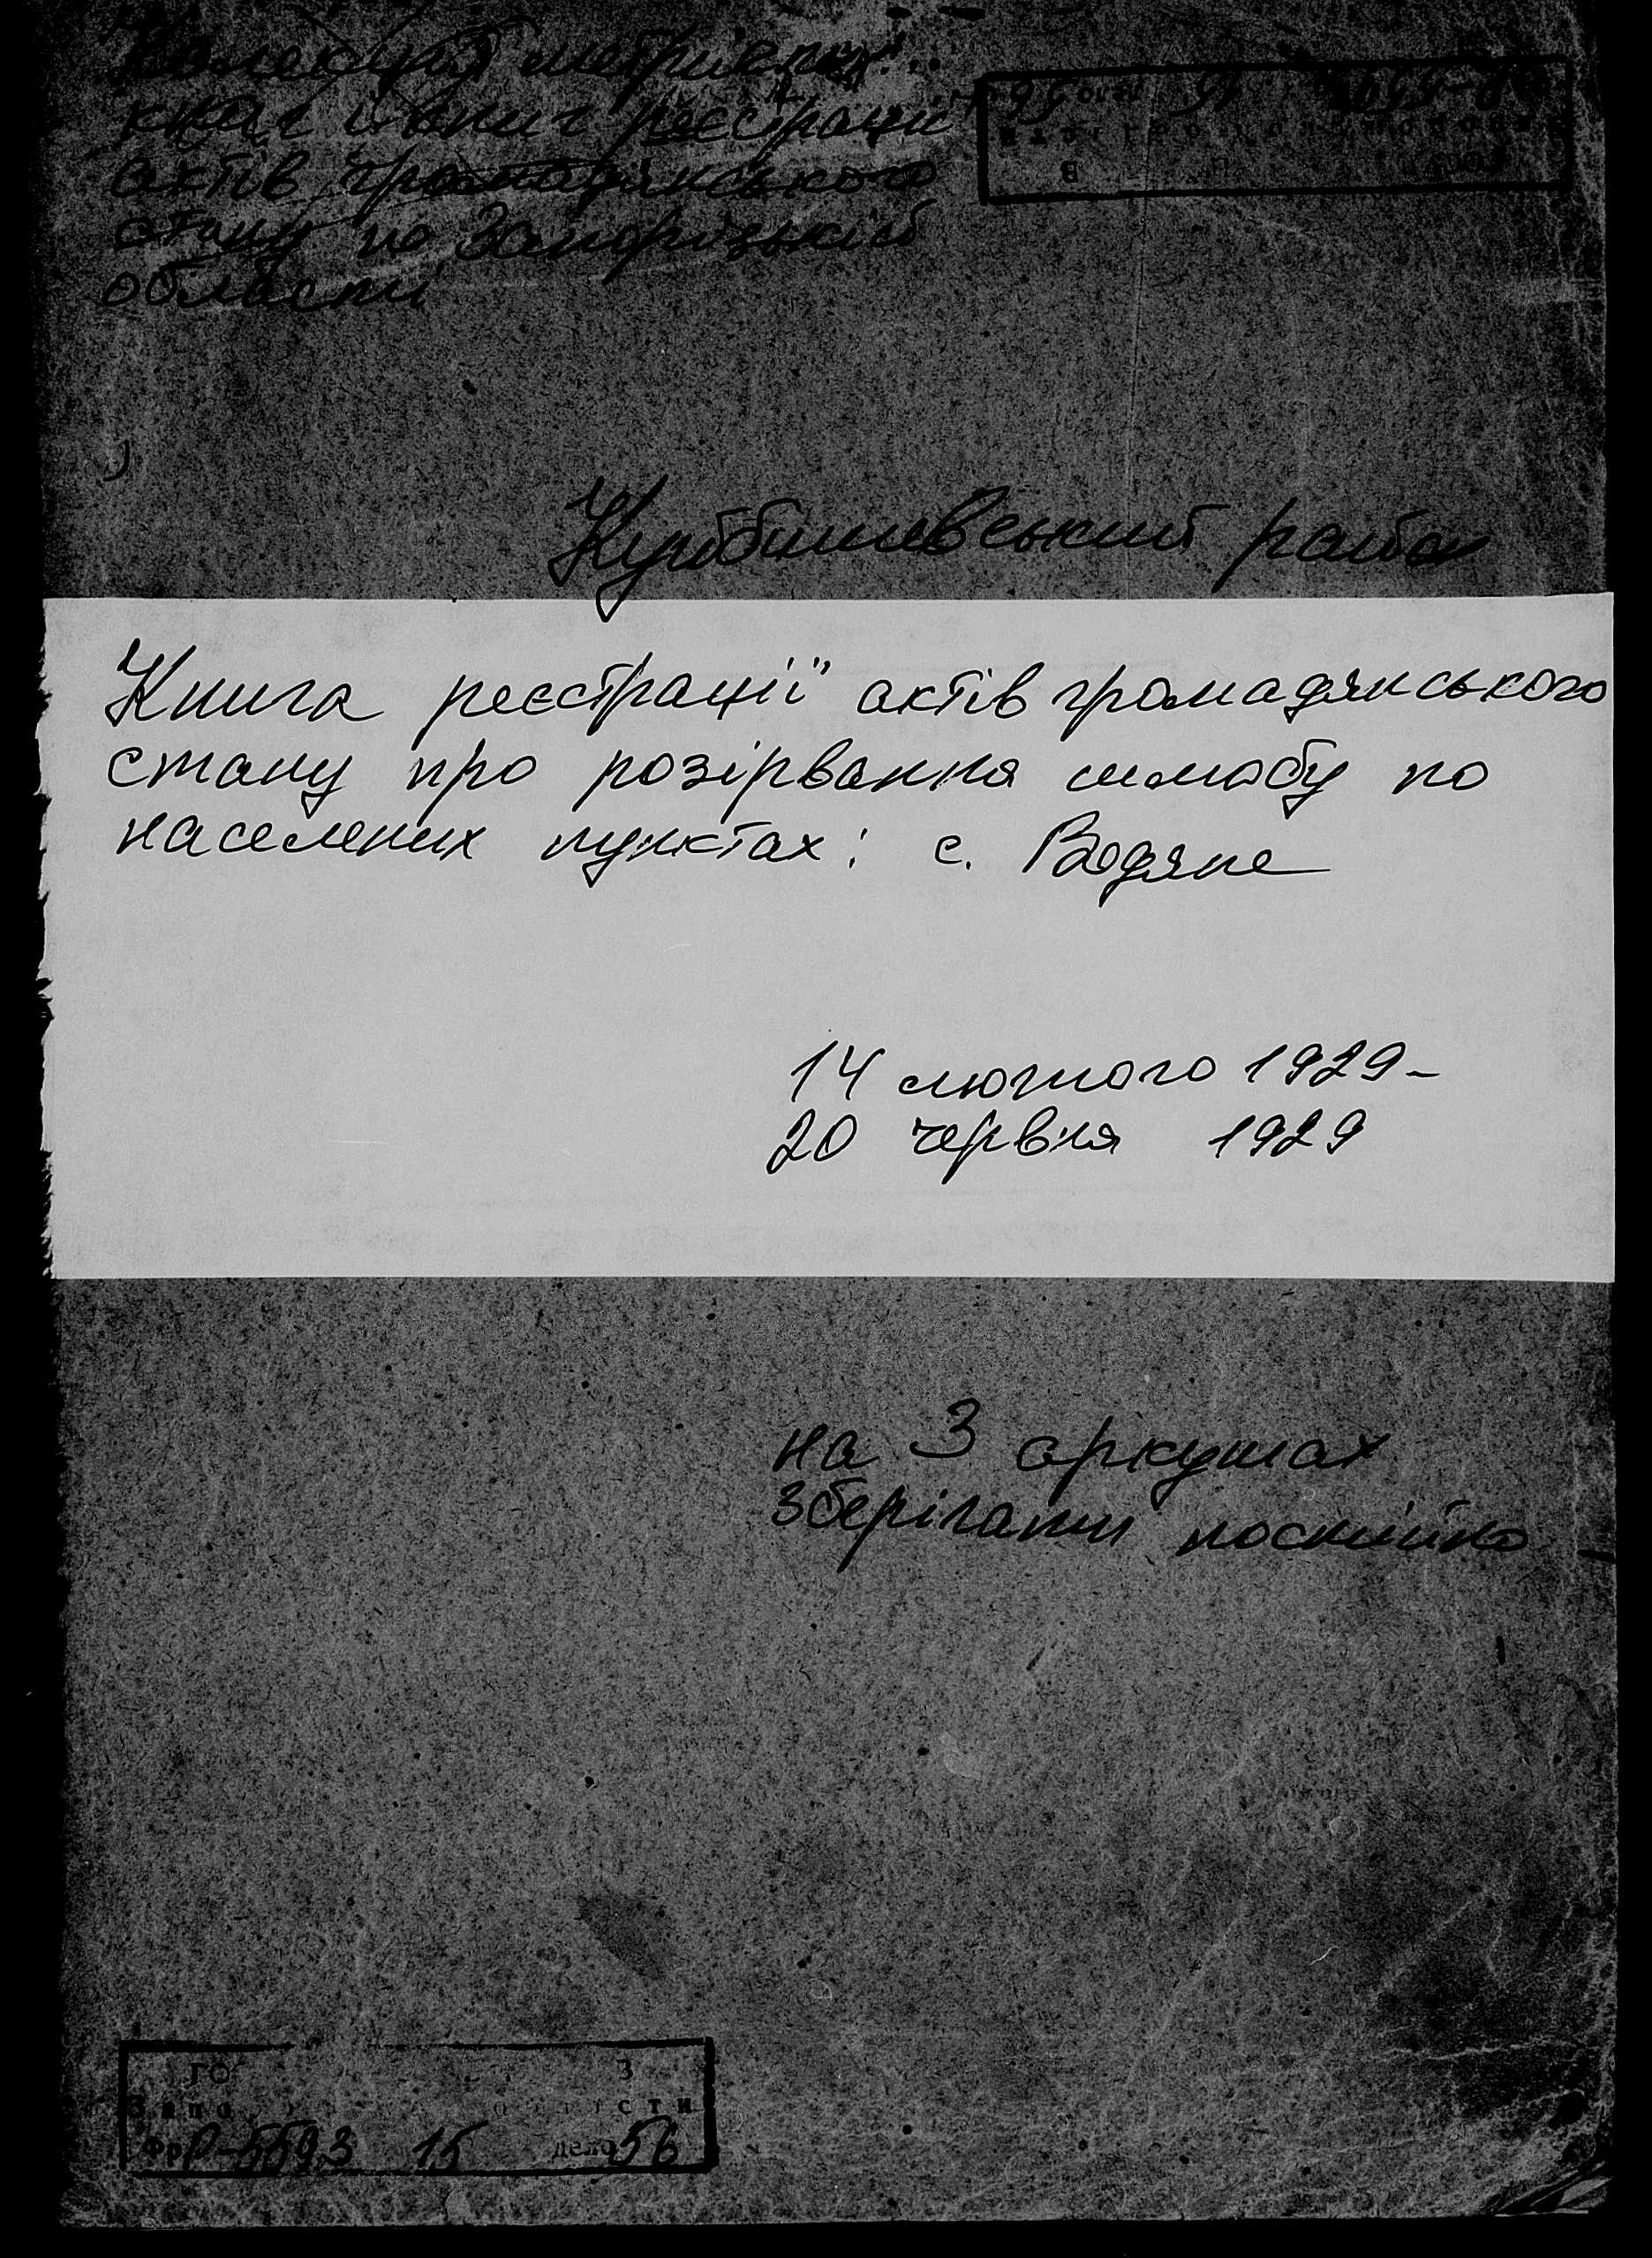 Колекція метричних
книг і книг реєстрації
актів громадянського
стану по Запорізькій
області
Куйбишевський район
Книга реєстрації актів громадянського
стану про розірвання шлюбу по
населених пунктах: с. Водяне
14 лютого 1929-
20 червня 1929
на 3 аркушах
Зберігати постійно
Р-5593 15 дело 56